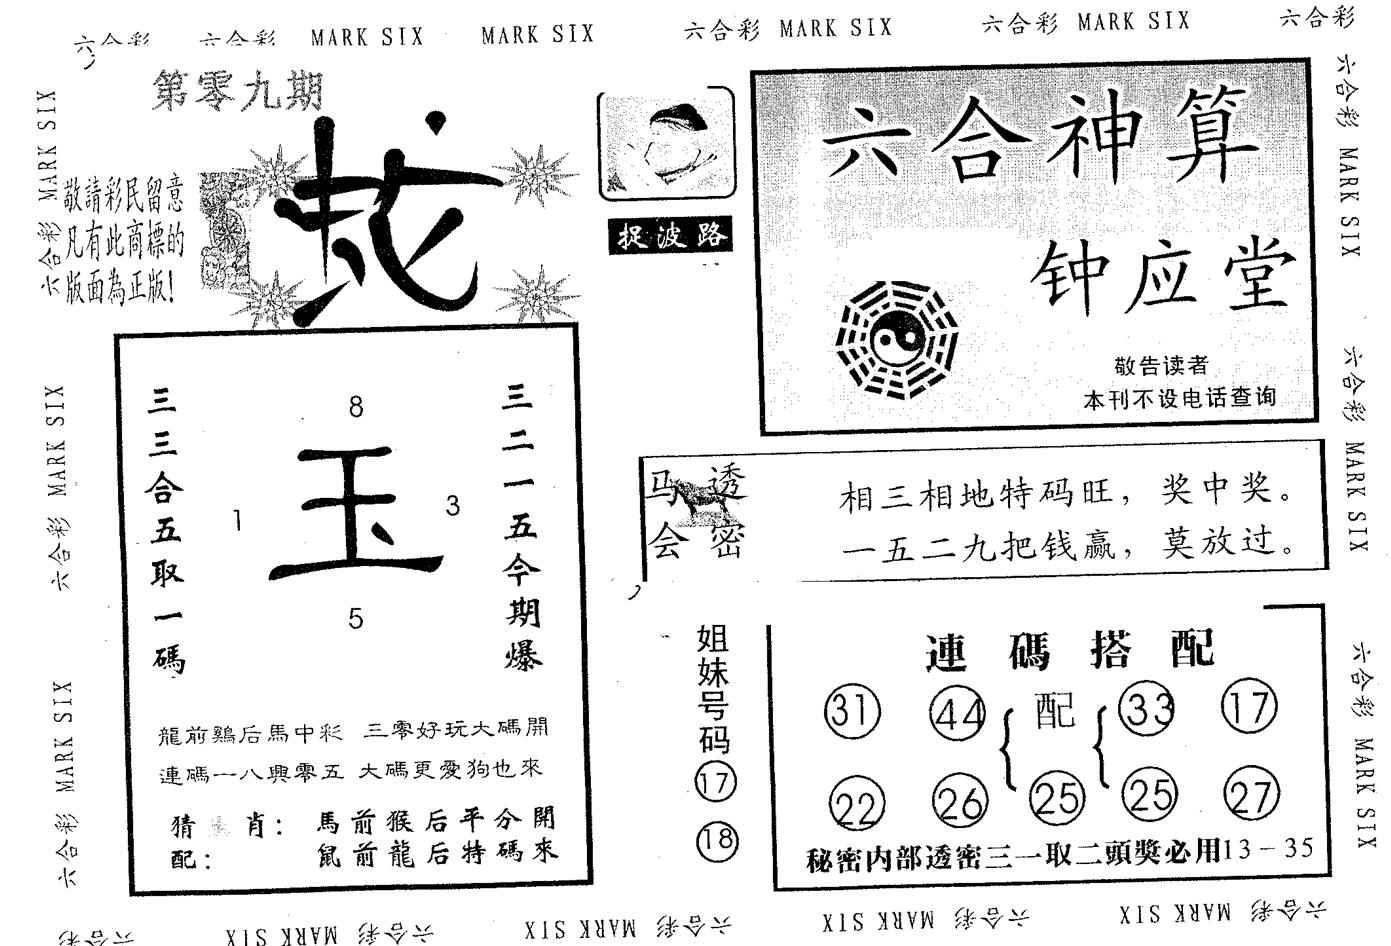 六合彩 MARK SIX MARK SIX 六合彩 MARK SIX 六合彩 MARK SIX 六合彩
六合彩 MARK SIX
六合彩 MARK SIX
六合彩 MARK SIX
第零九期
敬請彩民留意
凡有此商標的
版面為正版!
捉波路
六合神算
钟应堂
敬告读者
本刊不设电话查询
三三合五取一碼
8
1
玉
3
5
三二一五今期爆
龍前鷄后馬中彩 三零好玩大碼開
連碼一八與零五 大碼更愛狗也來
猜 肖: 馬前猴后平分開
配: 鼠前龍后特碼來
马会
透密
相三相地特码旺,奖中奖。
一五二九把钱赢,莫放过。
姐妹号码
17
18
連碼搭配
31 44 { 配 { 33 17
22 26 25 25 27
秘密内部透密三一取二頭獎必用13-35
六合彩 MARK SIX
六合彩 MARK SIX
六合彩 MARK SIX
六合彩 MARK SIX 六合彩 MARK SIX 六合彩 MARK SIX 六合彩 MARK SIX 六合彩